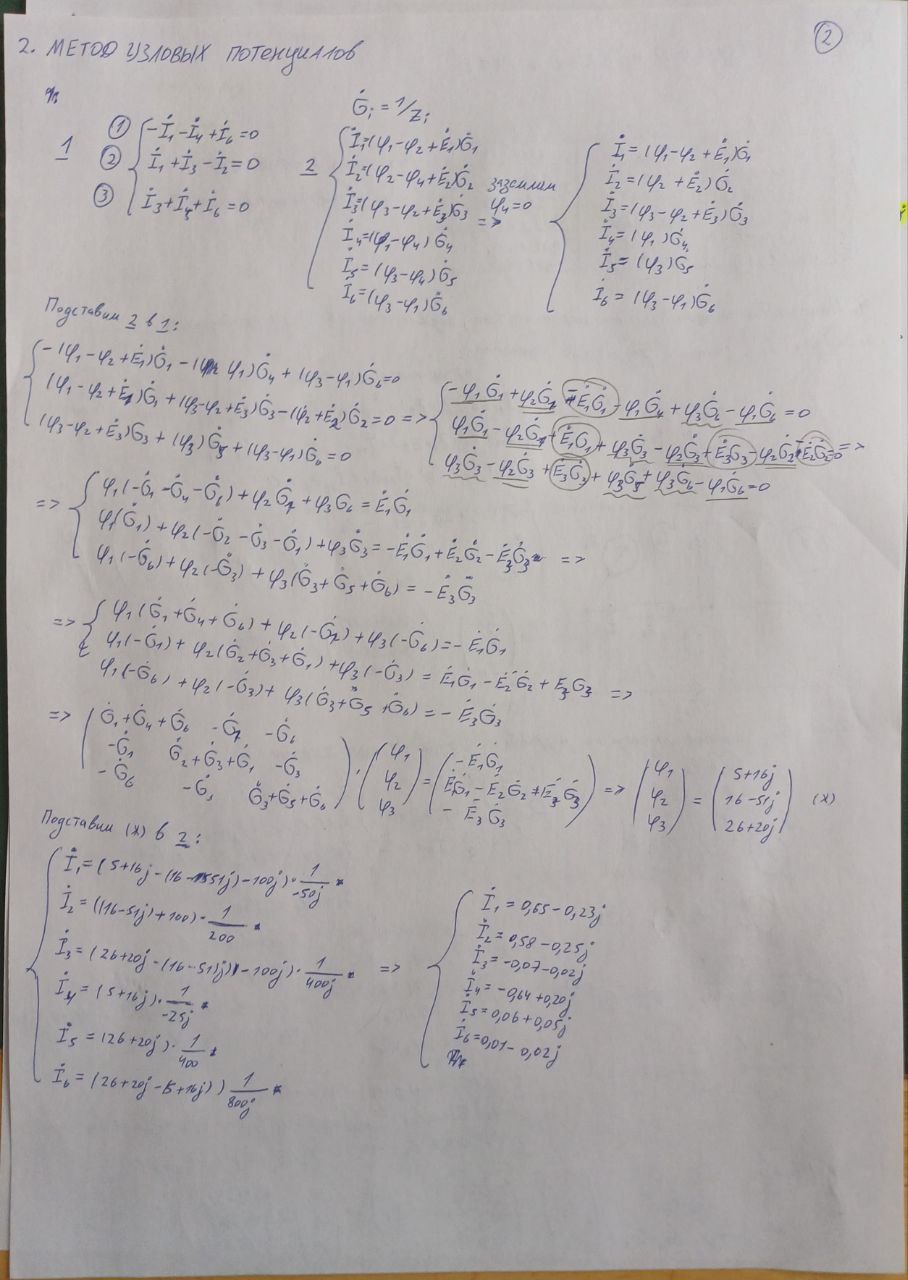 2. МЕТОД УЗЛОВЫХ ПОТЕНЦИАЛОВ
②
Ġᵢ = 1/Zᵢ
1
① -İ₁-İ₄+İ₆=0
② İ₁+İ₃-İ₂=0
③ İ₃+İ₅+İ₆=0
2
İ₁=(φ₁-φ₂+Ė₁)Ġ₁
İ₂=(φ₂-φ₄+Ė₂)Ġ₂
İ₃=(φ₃-φ₂+Ė₃)Ġ₃
İ₄=(φ₁-φ₄)Ġ₄
İ₅=(φ₃-φ₄)Ġ₅
İ₆=(φ₃-φ₁)Ġ₆
заземлим
φ₄=0
=>
İ₁=(φ₁-φ₂+Ė₁)Ġ₁
İ₂=(φ₂+Ė₂)Ġ₂
İ₃=(φ₃-φ₂+Ė₃)Ġ₃
İ₄=(φ₁)Ġ₄
İ₅=(φ₃)G₅
İ₆=(φ₃-φ₁)Ġ₆
Подставим 2 в 1:
-(φ₁-φ₂+Ė₁)Ġ₁-(φ₁)Ġ₄+(φ₃-φ₁)Ġ₆=0
(φ₁-φ₂+Ė₁)Ġ₁+(φ₃-φ₂+Ė₃)Ġ₃-(φ₂+Ė₂)Ġ₂=0 =>
(φ₃-φ₂+Ė₃)G₃+(φ₃)Ġ₅+(φ₃-φ₁)Ġ₆=0
-φ₁Ġ₁+φ₂Ġ₁-Ė₁Ġ₁-φ₁Ġ₄+φ₃Ġ₆-φ₁Ġ₆=0
φ₁Ġ₁-φ₂Ġ₁+Ė₁Ġ₁+φ₃Ġ₃-φ₂Ġ₃+Ė₃Ġ₃-φ₂Ġ₂-Ė₂Ġ₂=0 =>
φ₃Ġ₃-φ₂Ġ₃+Ė₃Ġ₃+φ₃Ġ₅+φ₃Ġ₆-φ₁Ġ₆=0
=> φ₁(-Ġ₁-Ġ₄-Ġ₆)+φ₂Ġ₁+φ₃G₆=Ė₁Ġ₁
φ₁(Ġ₁)+φ₂(-Ġ₂-Ġ₃-Ġ₁)+φ₃Ġ₃=-Ė₁Ġ₁+Ė₂Ġ₂-Ė₃Ġ₃ =>
φ₁(-Ġ₆)+φ₂(-Ġ₃)+φ₃(Ġ₃+Ġ₅+Ġ₆)=-Ė₃Ġ₃
=> φ₁(Ġ₁+Ġ₄+Ġ₆)+φ₂(-Ġ₁)+φ₃(-Ġ₆)=-Ė₁Ġ₁
φ₁(-Ġ₁)+φ₂(Ġ₂+Ġ₃+Ġ₁)+φ₃(-Ġ₃)=Ė₁Ġ₁-Ė₂Ġ₂+Ė₃G₃ =>
φ₁(-Ġ₆)+φ₂(-Ġ₃)+φ₃(Ġ₃+Ġ₅+Ġ₆)=-Ė₃Ġ₃
=> Ġ₁+Ġ₄+Ġ₆ -Ġ₁ -Ġ₆
-Ġ₁ Ġ₂+Ġ₃+Ġ₁ -Ġ₃
-Ġ₆ -Ġ₃ Ġ₃+Ġ₅+Ġ₆
·
φ₁
φ₂
φ₃
=
-Ė₁Ġ₁
Ė₁Ġ₁-Ė₂Ġ₂+Ė₃Ġ₃
-Ė₃Ġ₃
=>
φ₁
φ₂
φ₃
=
5+16j
16-51j
26+20j
(X)
Подставим (X) в 2:
İ₁=(5+16j-(16-51j)-100j)·1/-50j
İ₂=((16-51j)+100)·1/200
İ₃=(26+20j-(16-51j)-100j)·1/400j
İ₄=(5+16j)·1/-25j
İ₅=(26+20j)·1/400
İ₆=(26+20j-(5+16j))1/800j
=>
İ₁=0,65-0,23j
İ₂=0,58-0,25j
İ₃=-0,07-0,02j
İ₄=-0,64+0,20j
İ₅=0,06+0,05j
İ₆=0,01-0,02j